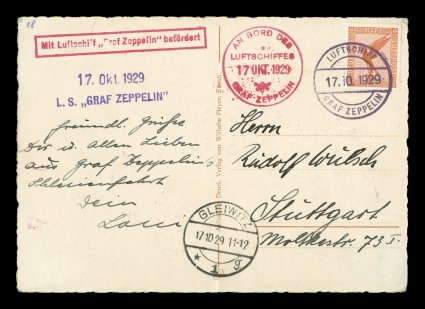 18
Mit Luftschiff „Graf Zeppelin" befördert
17. Okt. 1929
L. S. „GRAF ZEPPELIN"
AN BORD DES
LUFTSCHIFFES
17 OKT. 1929
GRAF ZEPPELIN
LUFTSCHIFF
17.10.1929
GRAF ZEPPELIN
freundl. Grüße
Dir u. allen Lieben
aus Graf Zeppelin's
Schlesienfahrt
Dein
Druck u. Verlag von Wilhelm Meyer,
Herrn
Rudolf Wulsch
Stuttgart
Moltkestr. 73 I.
GLEIWITZ
17.10.29 11-12
* 1 g